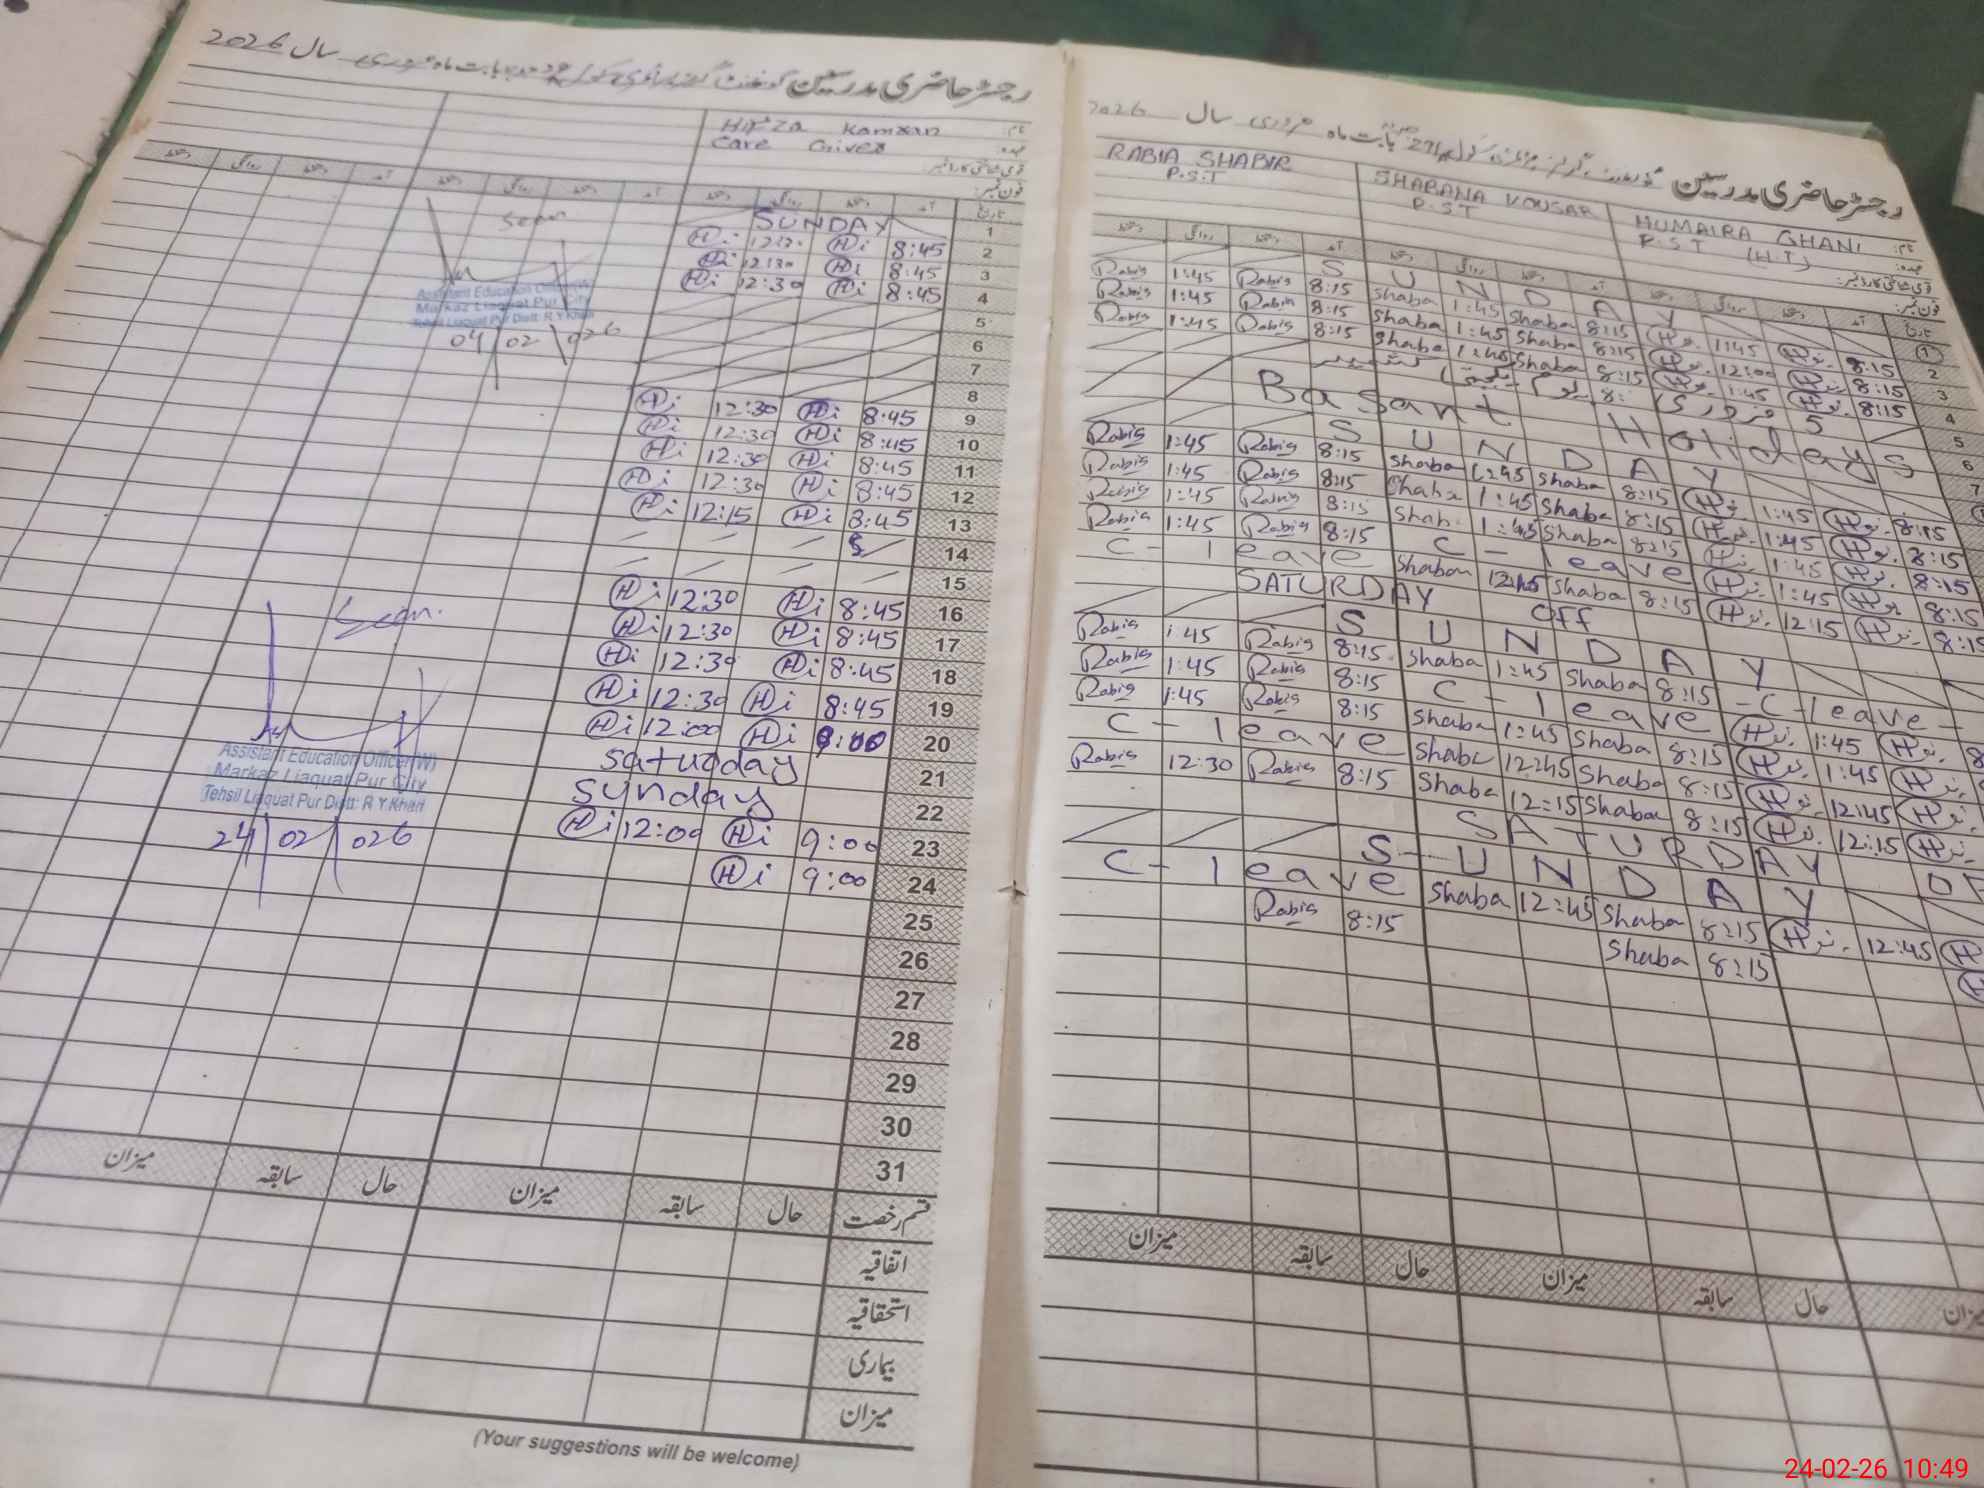 رجسٹر حاضری مدرسین گورنمنٹ بابت ماہ فروری سال 2026
نام: Hifza Kamran
عہدہ: Care Giver
قومی شناختی کارڈ نمبر:
فون نمبر:
تاریخ آمد دستخط روانگی دستخط آمد دستخط روانگی دستخط
1 SUNDAY
2 8:45 Hi 12:30 Hi
3 8:45 Hi 12:30 Hi
4 8:45 Hi 12:30 Hi
5
6
7
8
9 8:45 Hi 12:30 Hi
10 8:45 Hi 12:30 Hi
11 8:45 Hi 12:30 Hi
12 8:45 Hi 12:30 Hi
13 8:45 Hi 12:15 Hi
14
15
16 8:45 Hi 12:30 Hi
17 8:45 Hi 12:30 Hi
18 8:45 Hi 12:30 Hi
19 8:45 Hi 12:30 Hi
20 9:00 Hi 12:00 Hi
21 Saturday
22 Sunday
23 9:00 Hi 12:00 Hi
24 9:00 Hi
25
26
27
28
29
30
31
Seen
Assistant Education Officer (W)
Markaz Liaquat Pur City
Tehsil Liaquat Pur Distt: R.Y.Khan
04/02/026
Seen.
Assistant Education Officer (W)
Markaz Liaquat Pur City
Tehsil Liaquat Pur Distt: R.Y.Khan
24/02/026
قسم رخصت حال سابقہ میزان حال سابقہ میزان
اتفاقیہ
استحقاقیہ
بیماری
میزان
(Your suggestions will be welcome)
رجسٹر حاضری مدرسین بابت ماہ فروری سال 2026
نام: HUMAIRA GHANI SHABANA KOUSAR RABIA SHABIR
عہدہ: P.S.T (H.T) P.S.T P.S.T
قومی شناختی کارڈ نمبر:
فون نمبر:
تاریخ آمد دستخط روانگی دستخط آمد دستخط روانگی دستخط آمد دستخط روانگی دستخط
1 SUNDAY
2 8:15 1:45 8:15 Shaba 1:45 Shaba 8:15 Rabia 1:45 Rabia
3 8:15 12:00 8:15 Shaba 1:45 Shaba 8:15 Rabia 1:45 Rabia
4 8:15 1:45 8:15 Shaba 1:45 Shaba 8:15 Rabia 1:45 Rabia
5 5 فروری یوم یکجہتی کشمیر
6 Basant Holidays
7
SUNDAY
8:15 1:45 8:15 Shaba 1:45 Shaba 8:15 Rabia 1:45 Rabia
8:15 1:45 8:15 Shaba 1:45 Shaba 8:15 Rabia 1:45 Rabia
8:15 1:45 8:15 Shaba 1:45 Shaba 8:15 Rabia 1:45 Rabia
8:15 1:45 C-leave 8:15 Rabia 1:45 Rabia
8:15 12:15 8:15 Shaba 12:45 Shaba C-leave
SATURDAY Off
SUNDAY
-C-leave- 8:15 Shaba 1:45 Shaba 8:15 Rabia 1:45 Rabia
1:45 C-leave 8:15 Rabia 1:45 Rabia
1:45 8:15 Shaba 1:45 Shaba 8:15 Rabia 1:45 Rabia
12:45 8:15 Shaba 12:45 Shaba C-leave
12:15 8:15 Shaba 12:15 Shaba 8:15 Rabia 12:30 Rabia
SATURDAY
SUNDAY
12:45 8:15 Shaba 12:45 Shaba C-leave
8:15 Shaba 8:15 Rabia
حال سابقہ میزان حال سابقہ میزان
24-02-26 10:49